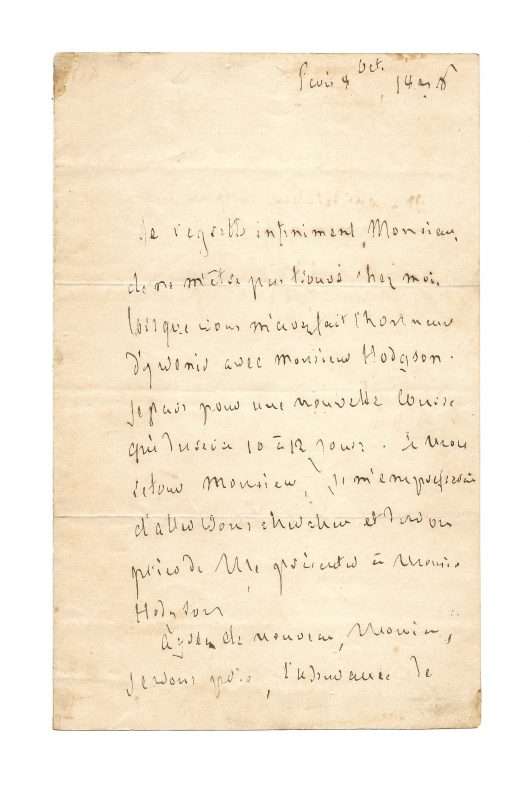 Paris 8 Oct. 18
Je regrette infiniment, Monsieur,
de ne m'être pas trouvé chez moi,
lorsque vous m'avez fait l'honneur
d'y venir avec monsieur Hodgson.
Je pars pour une nouvelle course
qui durera 10 à 12 jours. à mon
retour Monsieur, je m'empresserai
d'aller vous chercher et vous
prier de me présenter à Monsieur
Hodgson
agréez de nouveau, Monsieur,
je vous prie, l'assurance de